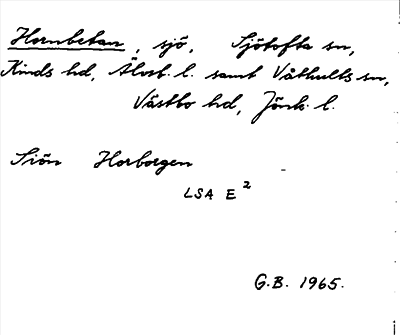 Hornbetan, sjö, Sjötofta sn,
Kinds hd, Älvsb. l. samt Våthults sn,
Västbo hd, Jönk. l.
Siön Horborgen
LSA E 2
G.B. 1965.